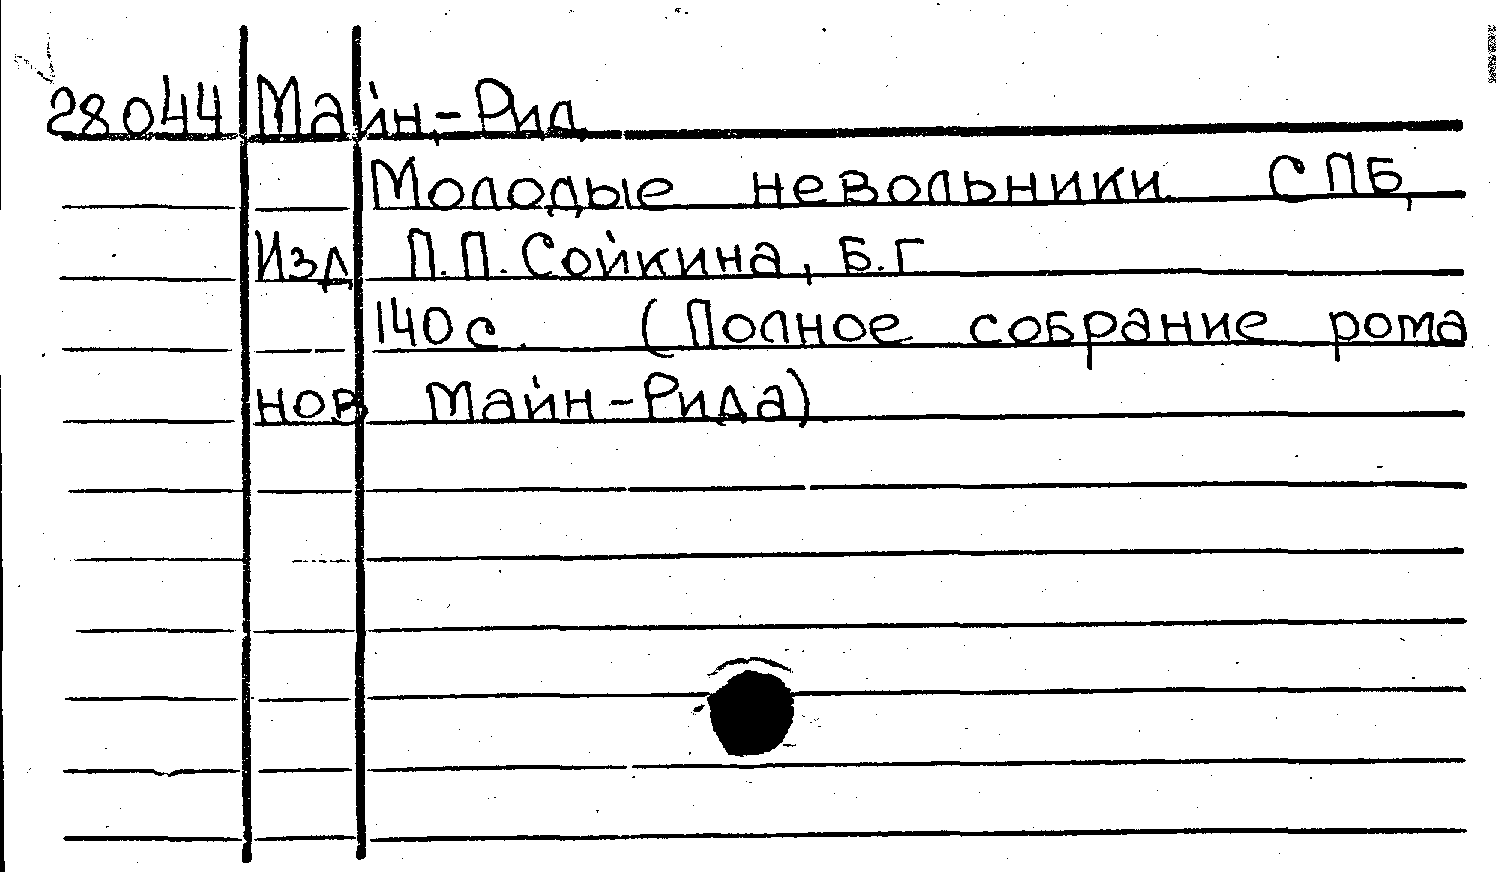 28044 Майн-Рид
Молодые невольники СПБ,
Изд П.П. Сойкина, Б.Г
140 с. (Полное собрание рома
нов Майн-Рида)